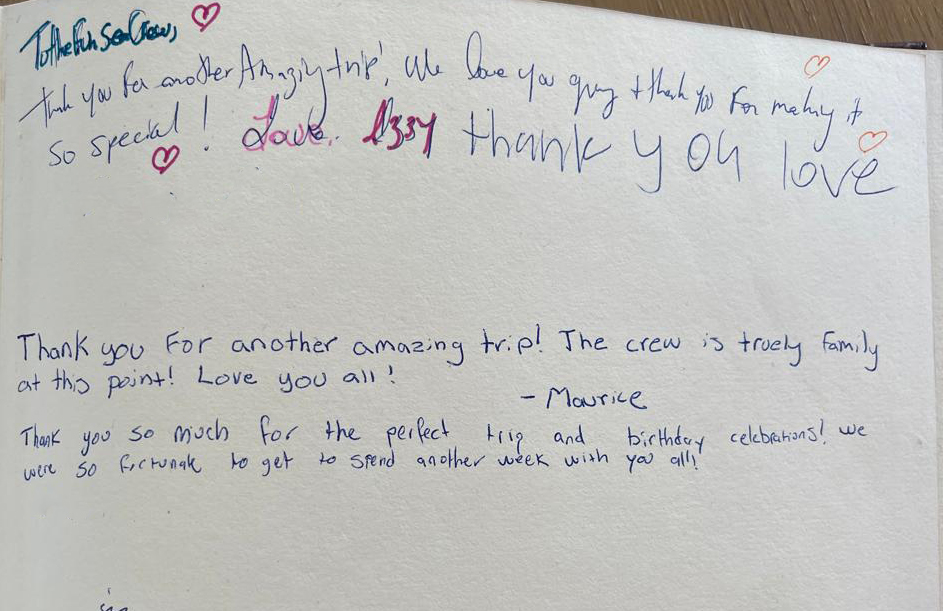 To the Fun Sea Crew,
Thank you for another Amazing trip! We love you guys + thank you For making it
So special! Love. Izzy thank you love
Thank you For another amazing trip! The crew is truely family
at this point! Love you all!
- Maurice
Thank you so much for the perfect trip and birthday celebrations! we
were so fortunate to get to spend another week with you all!